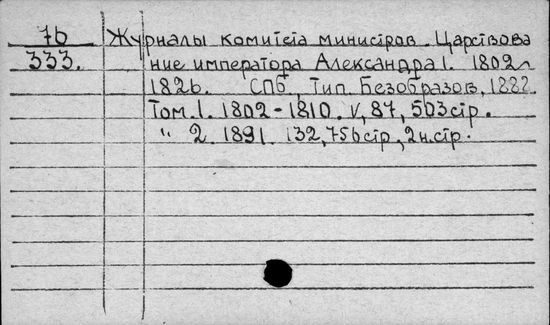 76
333.
Журналы комитета министров. Царствова
ние императора Александра I. 1802-
1826. СПб, Тип. Безобразов, 1888.
Том. 1. 1802-1810. V, 87, 503 стр.
" 2. 1891. 132, 756 стр, 2 н. стр.